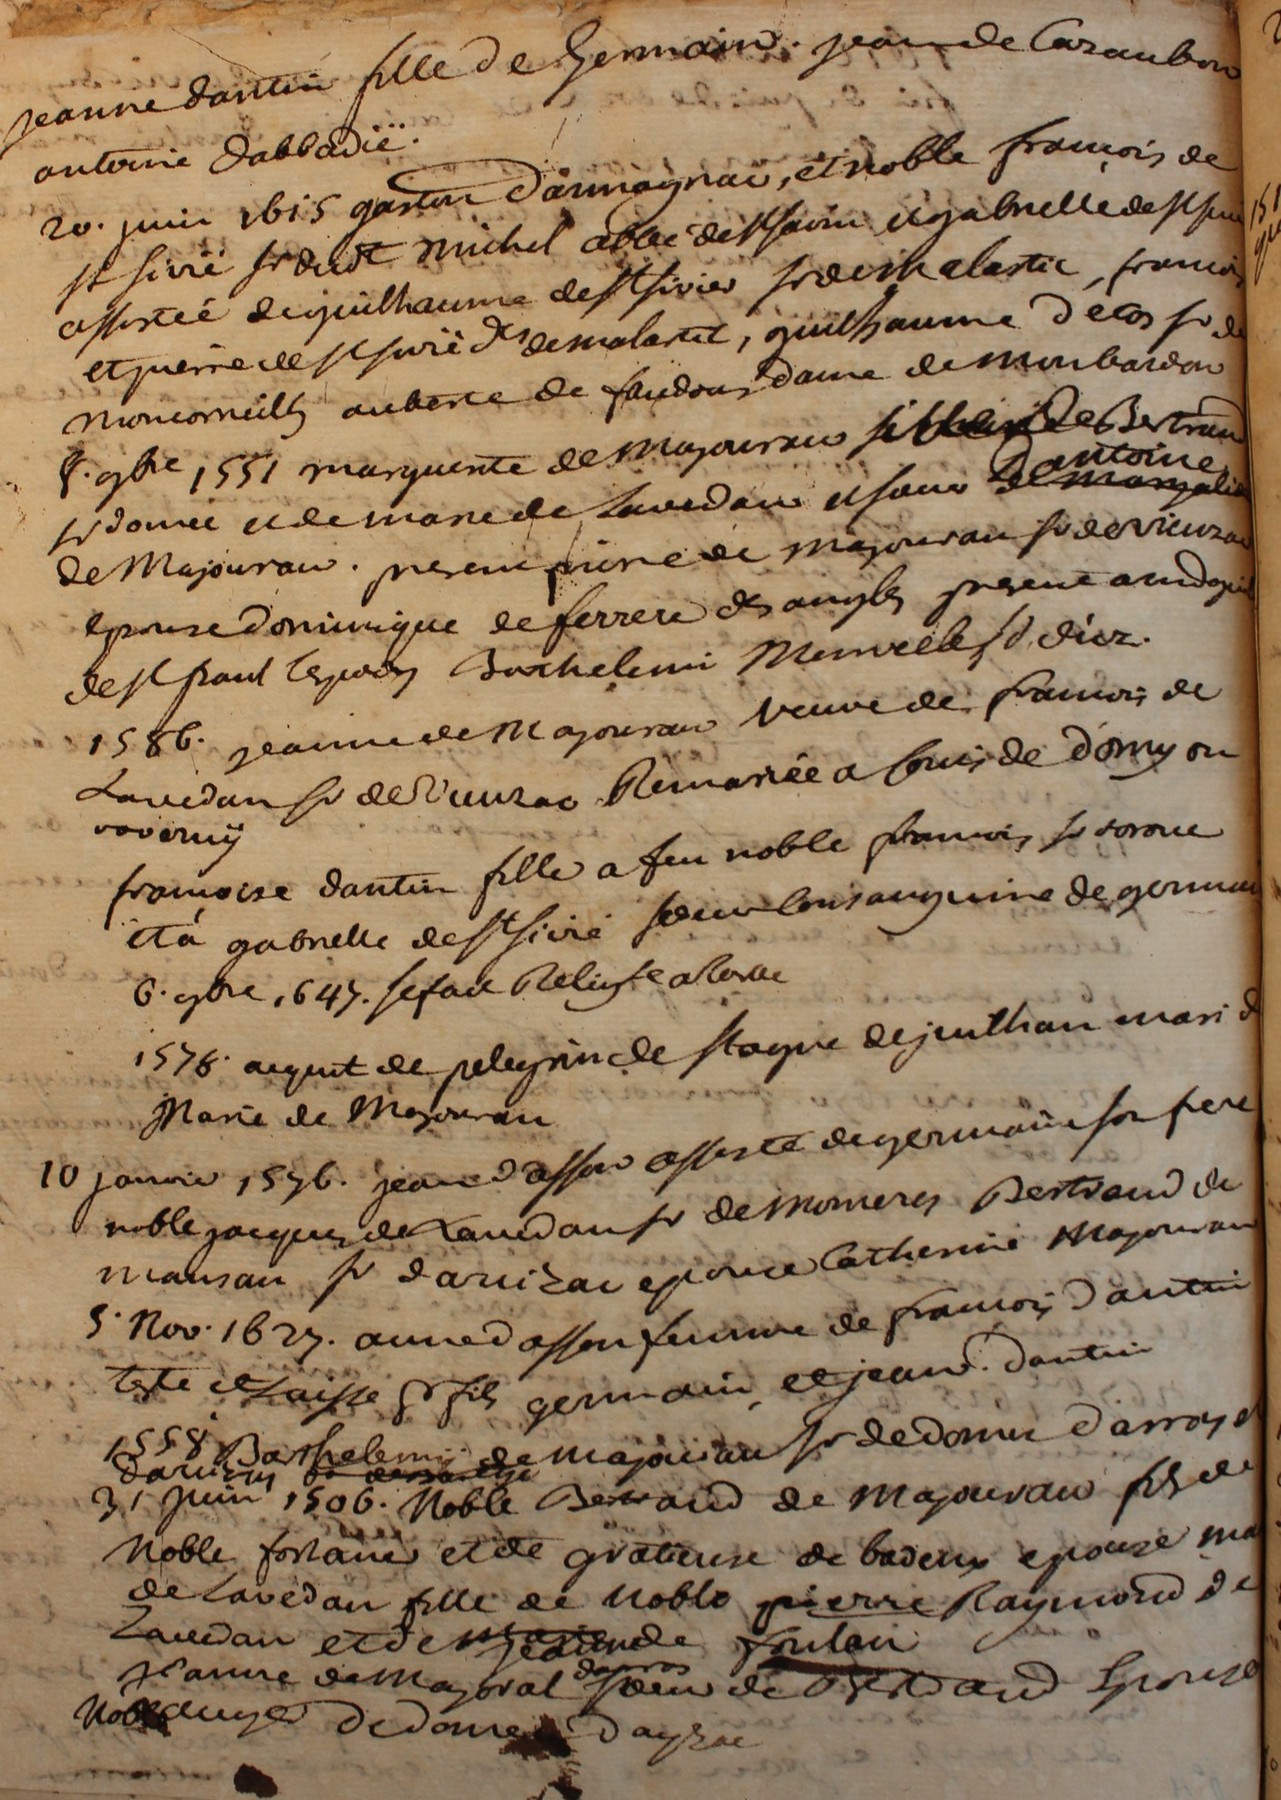 jeanne dantin fille de Germain. jean de Cazaubon
antoine dabbadie.
20. juin 1615 gaston d'armagnac, et noble françois de
st sivié sr dudt michel abbé de st savin et gabrielle de st sivié
assistée de guilhaume de st sivier sr de malartic, françois
et pierre de st sivié drs de malartic, guilhaume d'ecos sr de
moncorneilh auberte de faudoas dame de monbardon
8. gbre 1551 marguerite de majouraw fille de Bertrand
sr domec et de marie de Lavedan et soeur d'antoine
de Majouraw. present pierre de majourau sr de vieuzac
epouse dominique de ferrere des angles present arnd guil
de st paul Barthelemi sr diuz.
1586. jeanne de Majouraw veuve de françois de
Lavedan sr de vieuzac Remariée a louis de d'orny ou
rovernij
françoise dantin fille a feu noble françois sr
et a gabrielle de st sivié soeur consanguine de germain
6. gbre 1647. se fait Religse a
1578. aquit de pelegrin de stagne de juilhan mari d
Marie de Majourau
10 janvier 1576. jean d'asson assisté de germain son frere
noble jacques de Lavedan sr de momeres Bertrand de
mansan sr daruizac epouse Catherine Majourau
5. Nov. 1627. anne dasson femme de françois dantin
teste et laisse pr fils germain, et jean. dantin
1558 Barthelemij de majourau sr de domec d'arras et
darcizas
31 juin 1506. Noble Bertrand de majouraw fils de
Noble fortaner et de gratieuse de badeux epouse ma
de Lavedan fille de noble pierre Raymond de
Lavedan et de jeanne de
jeanne de mayoral darras soeur de Bertrand Epouse
Noble auger de domec d'ayzac